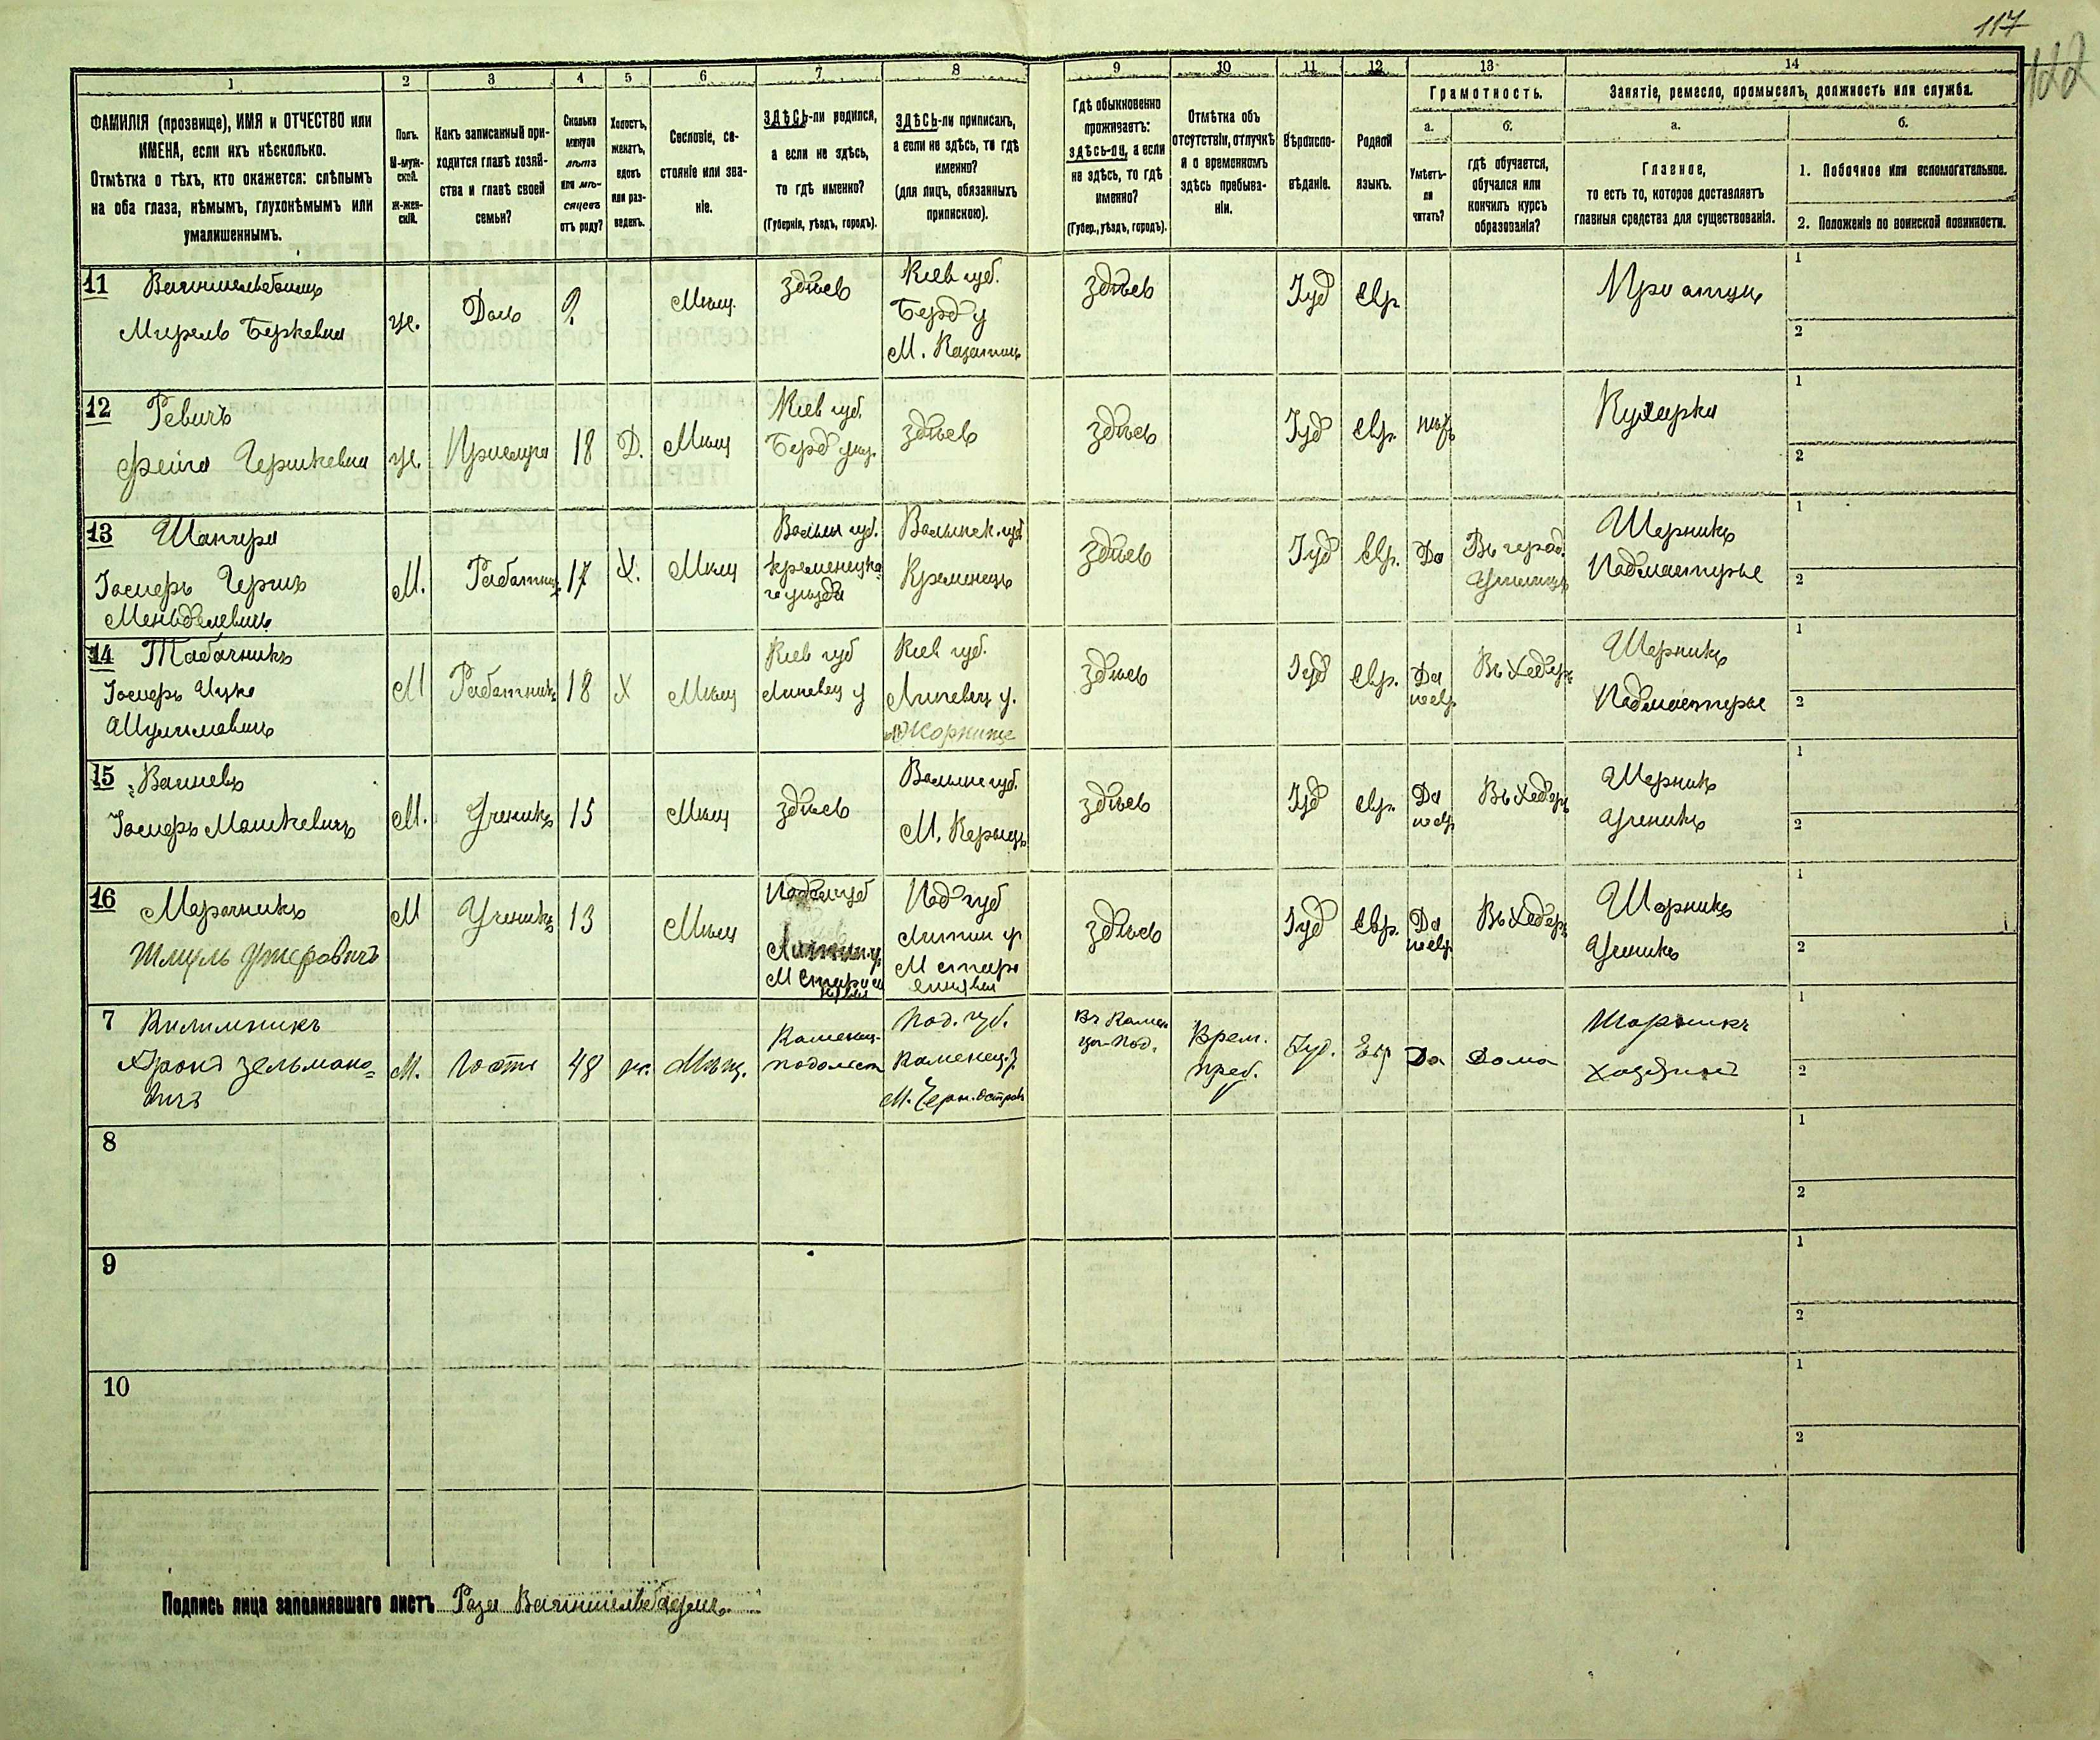 117
122
1 2 3 4 5 6 7 8 9 10 11 12 13 14
ФАМИЛІЯ (прозвище), ИМЯ и ОТЧЕСТВО или
ИМЕНА, если ихъ нѣсколько.
Отмѣтка о тѣхъ, кто окажется: слѣпымъ
на оба глаза, нѣмымъ, глухонѣмымъ или
умалишеннымъ.
Полъ.
М-муж-
ской.
Ж-жен-
скій.
Какъ записанный при-
ходится главѣ хозяй-
ства и главѣ своей
семьи?
Сколько
минуло
лѣтъ
или мѣ-
сяцевъ
отъ роду?
Холостъ,
женатъ,
вдовъ
или раз-
веденъ.
Сословіе, со-
стояніе или зва-
ніе.
ЗДѢСЬ-ли родился,
а если не здѣсь,
то гдѣ именно?
(Губернія, уѣздъ, городъ).
ЗДѢСЬ-ли приписанъ,
а если не здѣсь, то гдѣ
именно?
(для лицъ, обязанныхъ
припискою).
Гдѣ обыкновенно
проживаетъ:
здѣсь-ли, а если
не здѣсь, то гдѣ
именно?
(Губер., уѣздъ, городъ).
Отмѣтка объ
отсутствіи, отлучкѣ
и о временномъ
здѣсь пребыва-
ніи.
Вѣроиспо-
вѣданіе.
Родной
языкъ.
Грамотность.
а.
Умѣетъ-
ли
читать?
б.
гдѣ обучается,
обучался или
кончилъ курсъ
образованія?
Занятіе, ремесло, промыселъ, должность или служба.
а.
Главное,
то есть то, которое доставляетъ
главныя средства для существованія.
б.
1. Побочное или вспомогательное.
2. Положеніе по воинской повинности.
11
Мирель Беркевна
же.
Дочь
2
Мѣщ.
здѣсь
Кіев губ.
Берд у
М. Казатинъ
здѣсь
Іуд
Евр
При отцѣ
1
2
12
Ревичъ
Фейга Гершкевна
же.
18
Д.
Мѣщ
Кіев губ.
Берд уѣз.
здѣсь
здѣсь
Іуд
Евр.
нѣтъ
Кухарка
1
2
13
Шапира
Іосифъ Гершъ
Мендзелевичъ
М.
Работникъ
17
Х.
Мѣщ
Волын губ.
Кременецка
го уѣзда
Волынск. губ
Кременецъ
здѣсь
Іуд
Евр.
Да
Въ город.
Училищѣ
Шорникъ
Подмастерье
1
2
14
Табачникъ
Іосифъ Ицко
Шулимовичъ
М
Работникъ
18
Х
Мѣщ
Кіев губ
Липовец у
Кіев губ.
Липовец у.
здѣсь
Іуд
Евр.
Да
по евр
Въ Хедерѣ
Шорникъ
Подмастерье
1
2
15
Іосифъ Мошковичъ
М.
Ученикъ
15
Мѣщ
здѣсь
Волынс губ.
М. Корецъ
здѣсь
Іуд
Евр.
Да
по евр
Въ Хедерѣ
Шорникъ
Ученикъ
1
2
16
Мерочникъ
Шмуль Ушеровичъ
М
Ученикъ
13
Мѣщ
Под губ
Литин у
здѣсь
Іуд
Евр.
Да
по евр
Въ Хедерѣ
Шорникъ
Ученикъ
1
2
7
Килимникъ
Аронъ Зельмано-
вичъ
М.
гость
48
же.
Мѣщ.
Каменец-
Подольск
Под. губ.
Каменец. у.
М. Черн. Островъ
Въ Камен
цѣ-Под.
Врем.
преб.
Іуд.
Евр
Да
Дома
Шорникъ
Хозяинъ
1
2
8
1
2
9
1
2
10
1
2
Подпись лица заполнявшаго листъ